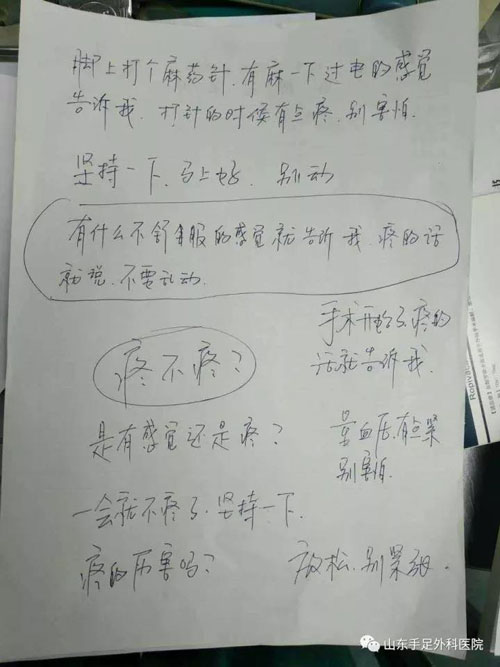 脚上打个麻药针,有麻一下过电的感觉
告诉我. 打针的时候有点疼,别害怕.
坚持一下、马上好、别动
有什么不舒服的感觉就告诉我、疼的话
就说、不要乱动.
手术开始了、疼的
话就告诉我.
疼不疼?
是有感觉还是疼?
量血压、有点紧
别害怕.
一会就不疼了、坚持一下.
疼的厉害吗?
放松、别紧张.
山东手足外科医院